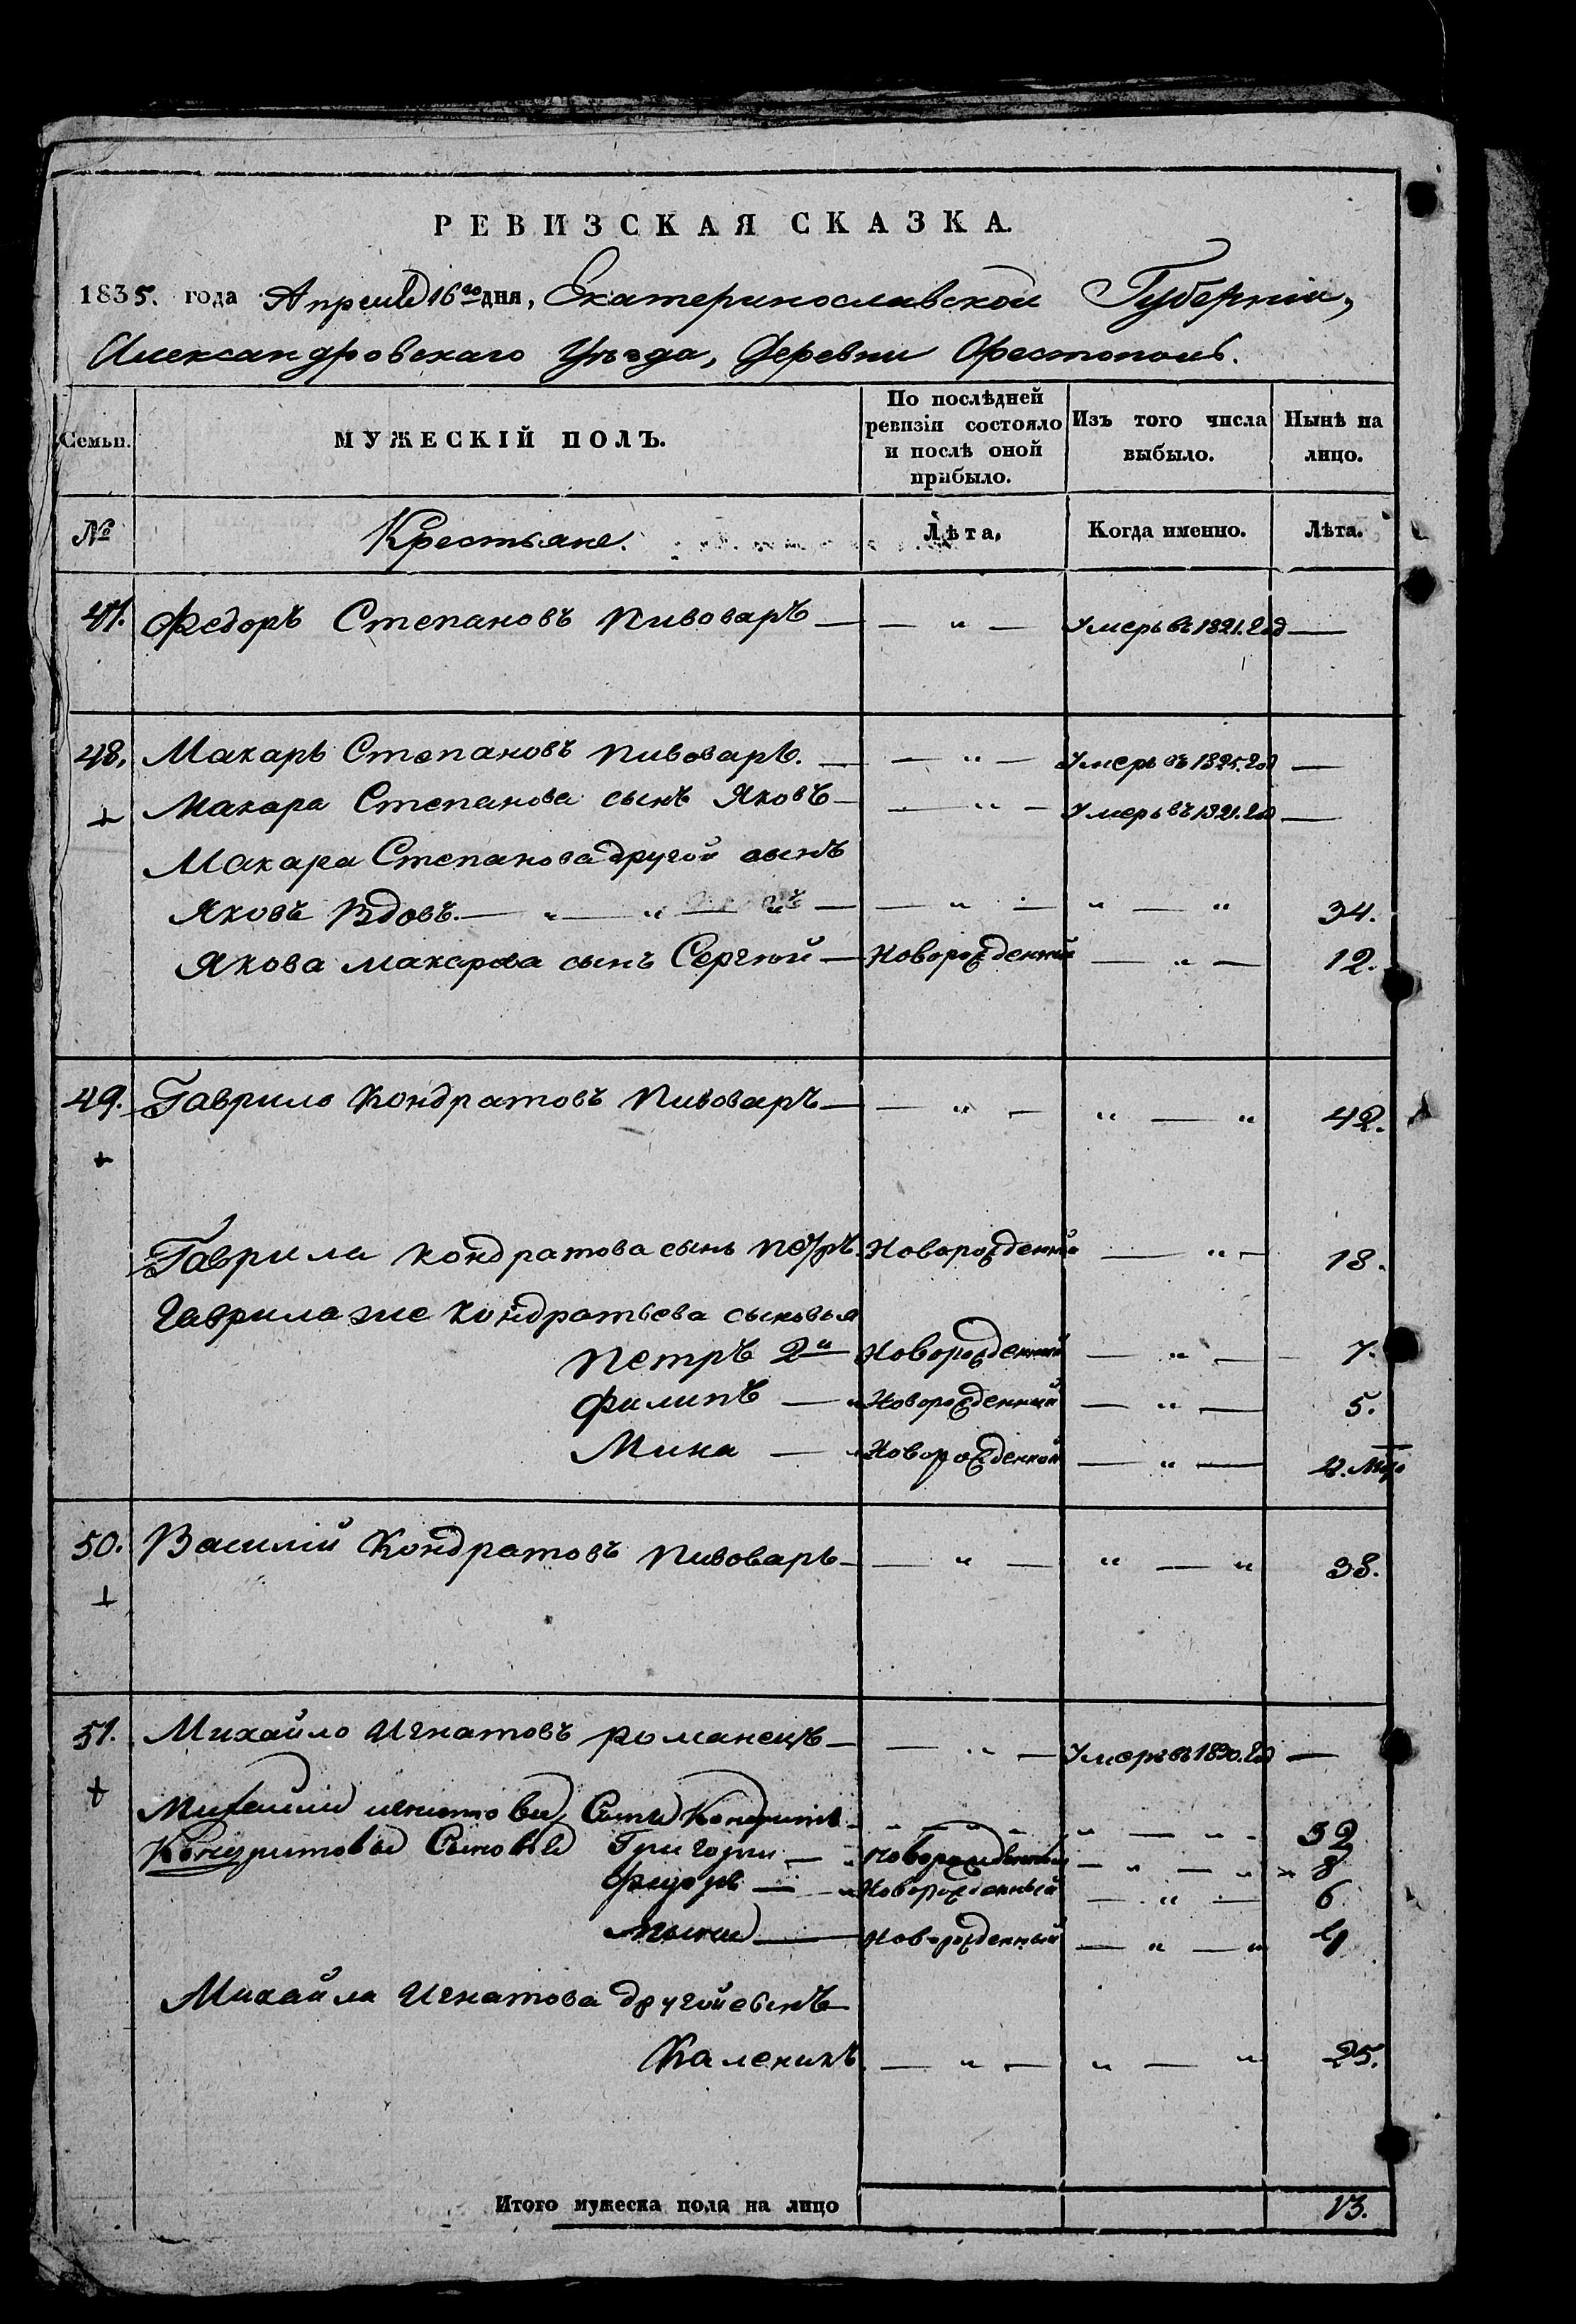 РЕВИЗСКАЯ СКАЗКА.
1835. года Апреля 16го дня, Екатеринославской Губерніи,
Александровскаго Уѣзда, Деревни Орестополь.
Семьи. МУЖЕСКІЙ ПОЛЪ. По послѣдней ревизіи состояло и послѣ оной прибыло. Изъ того числа выбыло. Нынѣ на лицо.
№ Крестьяне. Лѣта, Когда именно. Лѣта.
47. Федоръ Степановъ Пивоваръ — — " — Умеръ въ 1821. год —
48. Макаръ Степановъ Пивоваръ. — — " — Умеръ въ 1825. год —
+ Макара Степанова сынъ Яковъ — — " — Умеръ въ 1821. год —
Макара Степанова другой сынъ
Яковъ Вдовъ. — " — " — " — — " — " — " 34.
Якова Макарова сынъ Сергѣй — Новорожденный — " — 12.
49. Гаврило Кондратовъ Пивоваръ — — " — " — " 42.
+
Гаврила Кондратова сынъ Петръ Новорожденный — " — 18.
Гаврила же Кондратьева сыновья
Петръ 2й Новорожденный — " — 7.
Филипъ — " Новорожденный — " — 5.
Мина — " Новорожденной — " — 2. мѣс
50. Василій Кондратовъ Пивоваръ — — " — " — " 38.
+
51. Михайло Игнатовъ Романецъ — — " — Умеръ въ 1830. год —
+ Михайли Игнатова Сынъ Кондратъ " — " 32
Кондратовы Сыновья Григорий — Новорожденный — " — " 8
Федоръ — " Новорожденный — " — 6
Новорожденный — " — " 4
Михайла Игнатова другой сынъ
Каленикъ — " — " — " 25.
Итого мужеска пола на лицо 13.